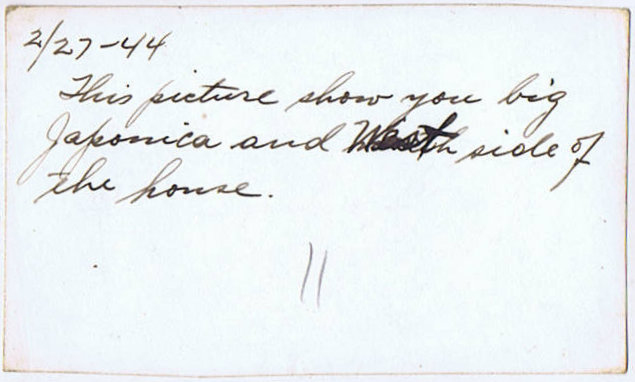 2/27-44
This picture show you big
Japonica and West side of
the house.
11